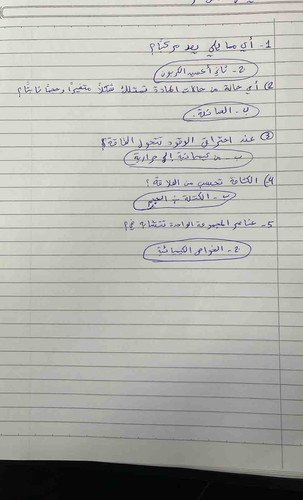 1- أي مما يلي يعد مركباً؟
2- ثاني أكسيد الكربون
2) أي حالة من حالات المادة تمتلك شكلاً متغيراً وحجماً ثابتاً؟
ب- السائلة.
3) عند احتراق الوقود تتحول الطاقة؟
ب- من كيميائية إلى حرارية
4) الكثافة تحسب من العلاقة؟
ب- الكتلة ÷ الحجم
5- عناصر المجموعة الواحدة تتشابه في؟
2- الخواص الكيميائية